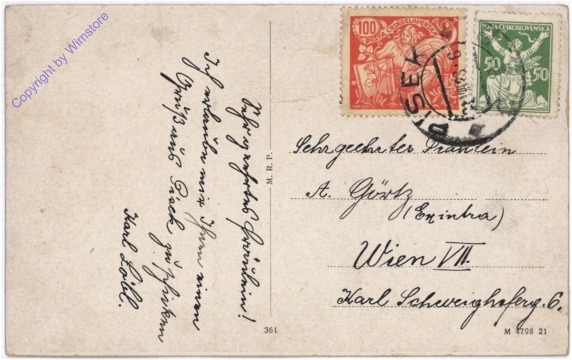 Copyright by Wimstore
Sehr geehrtes Fräulein!
Ich erlaube mir Ihnen einen
Gruß aus Pisek zu schicken
Karl Löbl.
M. R. P.
361
100
POŠTA ČESKOSLOVENSKÁ
PISEK
POŠTA ČESKOSLOVENSKÁ
50 50
Sehrgeehrter Fräulein
A. Görtz
(Exintra)
Wien VII.
Karl Schweighoferg. 6.
M 4798 21